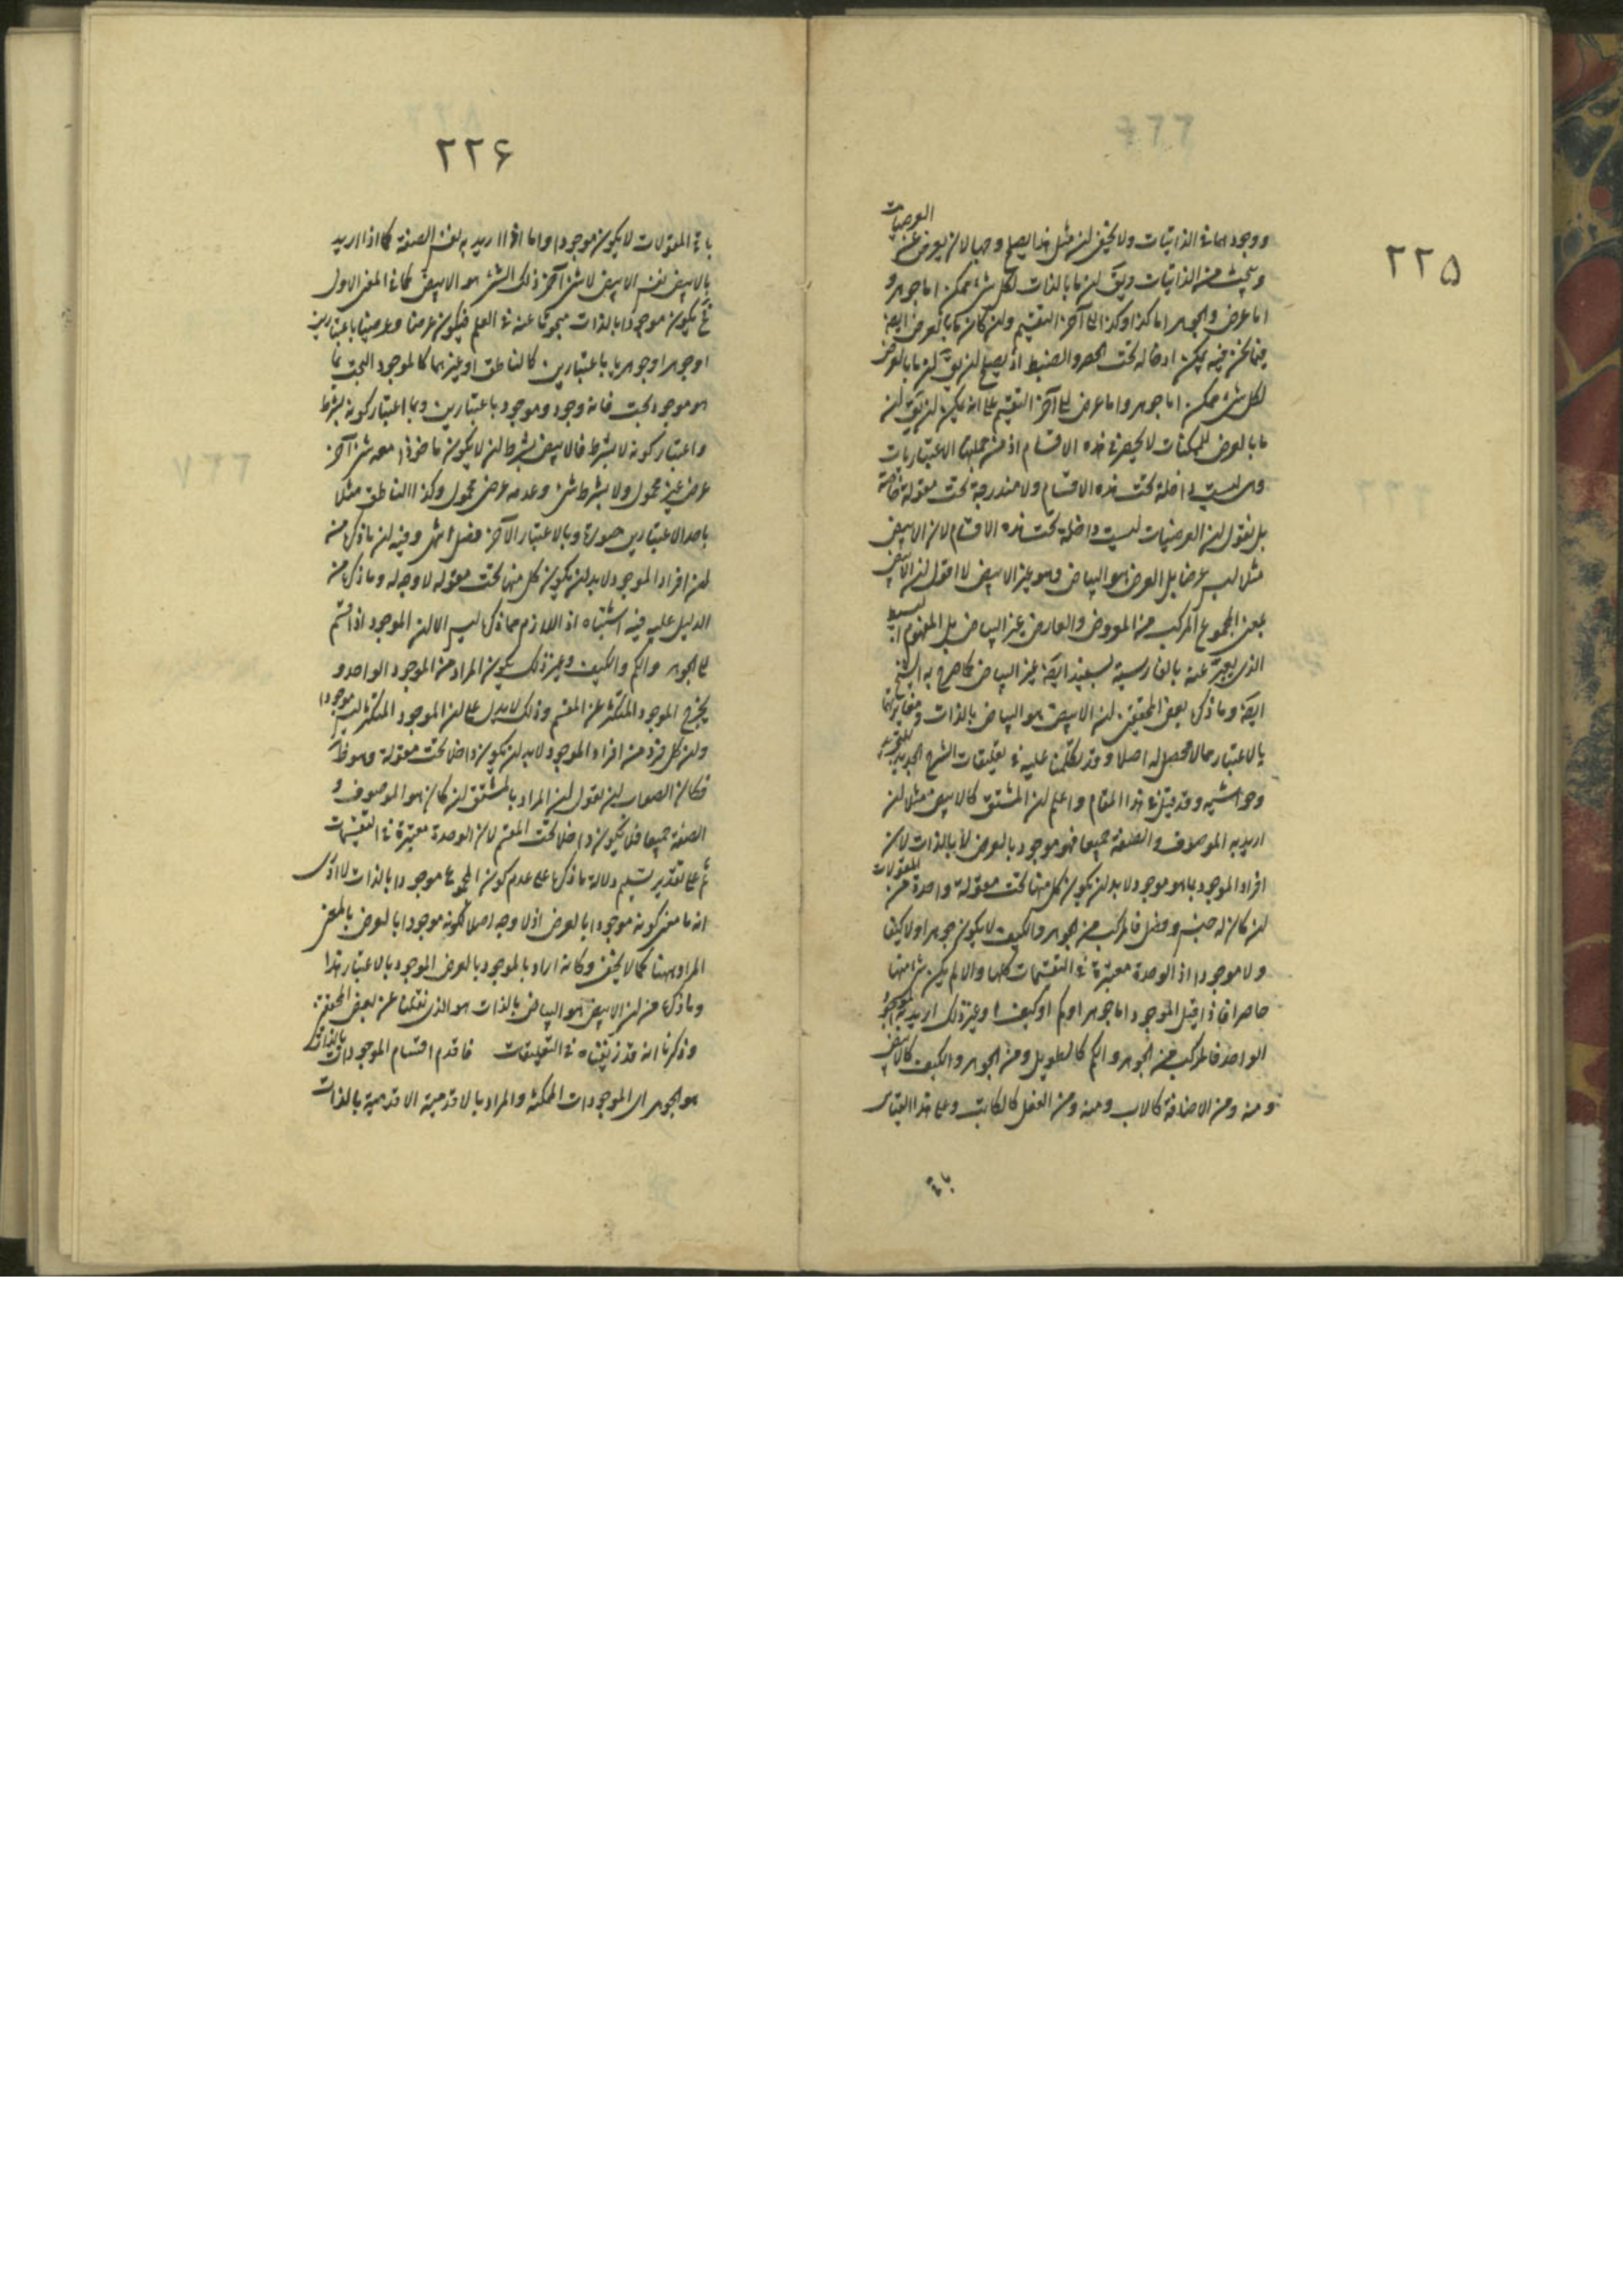 ٢٢۵
ووجودهما فى الذاتيات ولا يخفى ان مثل هذا يصلح وجها لان يعرض عن العرضيات
ويبحث عن الذاتيات ويق ان ما بالذات لكل شىء ممكن اما جوهر و
اما عرض والجوهر اما كذا وكذا الى آخر التقسيم وان كان ما بالعرض ايض
فيما نحن فيه يمكن ادخاله تحت الحصر والضبط اذ يصح ان يق ان ما بالعرض
لكل شىء ممكن اما جوهر واما عرض الى آخر التقسيم على انه يمكن ان يق ان
ما بالعرض للممكنات لا ينحصر فى هذه الاقسام اذ من جملتها الاعتباريات
وهى ليست داخلة تحت هذه الاقسام ولا مندرجة تحت مقولة خاصة
بل نقول ان العرضيات ليست داخلة تحت هذه الاقسام لان الابيض
مثلا ليس عرضا بل العرض هو البياض وهو غير الابيض لا اقول ان الابيض
بمعنى المجموع المركب من المعروض والعارض غير البياض بل المفهوم البسيط
الذى يعبر عنه بالفارسية بسفيد ايضا غير البياض كما صرح به الشيخ
ايضا وما ذكره بعض المحققين ان الابيض هو البياض بالذات ومغايرتهما
بالاعتبار مما لا محصل له اصلا وقد تكلمنا عليه فى تعليقات الشرح الجديد للتجريد
وحواشيه وقد قيل فى هذا المقام واعلم ان المشتق كالابيض مثلا ان
اريد به الموصوف والصفة جميعا فهو موجود بالعرض لا بالذات لان
افراد الموجود بما هو موجود لا بد ان يكون كل منها تحت مقولة واحدة من المقولات
ان كان له جنس وفصل فالمركب من الجوهر والكيف لا يكون جوهرا ولا كيفا
ولا موجودا اذ الوحدة معتبرة فى التقسيمات كلها والا لم يكن شىء منها
حاصرا فاذا قيل الموجود اما جوهر او كم او كيف او غير ذلك اريد به الموجود
الواحد فالمركب من الجوهر والكم كالطويل ومن الجوهر والكيف كالابيض
ومنه ومن الاضافة كالاب ومنه ومن الفعل كالكاتب وعلى هذا القياس
باقى
٢٢۶
باقى المقولات لا يكون موجودا واما اذا اريد به نفس الصفة كما اذا اريد
بالابيض نفس الابيض لا شىء آخر ذلك الشىء هو الابيض كما فى المعنى الاول
فح يكون موجودا بالذات مبحوثا عنه فى العلم فيكون عرضا وعرضيا باعتبارين
او جوهرا وجوهريا باعتبارين كالناطق او غيرهما كالموجود البحت بما
هو موجود بحت فانه وجود وموجود باعتبارين وبما اعتبار كونه بشرط
واعتبار كونه لا بشرط فالابيض بشرط ان لا يكون ماخوذا معه شىء آخر
عرض غير محمول ولا بشرط شىء وعدمه عرضى محمول وكذا الناطق مثلا
باحد الاعتبارين صورة وبالاعتبار الآخر فصل انتهى وفيه ان ما ذكره من
ان افراد الموجود لا بد ان يكون كل منها تحت مقولة لا وجه له وما ذكره من
الدليل عليه فيه اشتباه اذ اللازم مما ذكره ليس الا ان الموجود اذا قسم
الى الجوهر والكم والكيف وغير ذلك يكون المراد من الموجود الواحد و
يخرج الموجود المتكثر عن المقسم وذلك لا يدل على ان الموجود المتكثر ليس موجودا
وان كل فرد من افراد الموجود لا بد ان يكون داخلا تحت مقولة وهو ظ
فكان الصواب ان يقول ان المراد بالمشتق ان كان هو الموصوف و
الصفة جميعا فلا يكون داخلا تحت المقسم لان الوحدة معتبرة فى التقسيمات
ثم على تقدير تسليم دلالة ما ذكره على عدم كون المجموع موجودا بالذات لا ادرى
انه ما معنى كونه موجودا بالعرض اذ لا وجه اصلا لكونه موجودا بالعرض بالمعنى
المراد ههنا كما لا يخفى وكانه اراد بالموجود بالعرض الموجود بالاعتبار هذا
وما ذكره من ان الابيض هو البياض بالذات هو الذى نقلنا عن بعض المحققين
وذكرنا انه قد زيفناه فى التعليقات فاقدم اقسام الموجودات بالذات
هو الجوهر اى الموجودات الممكنة والمراد بالاقدمية الاقدمية بالذات